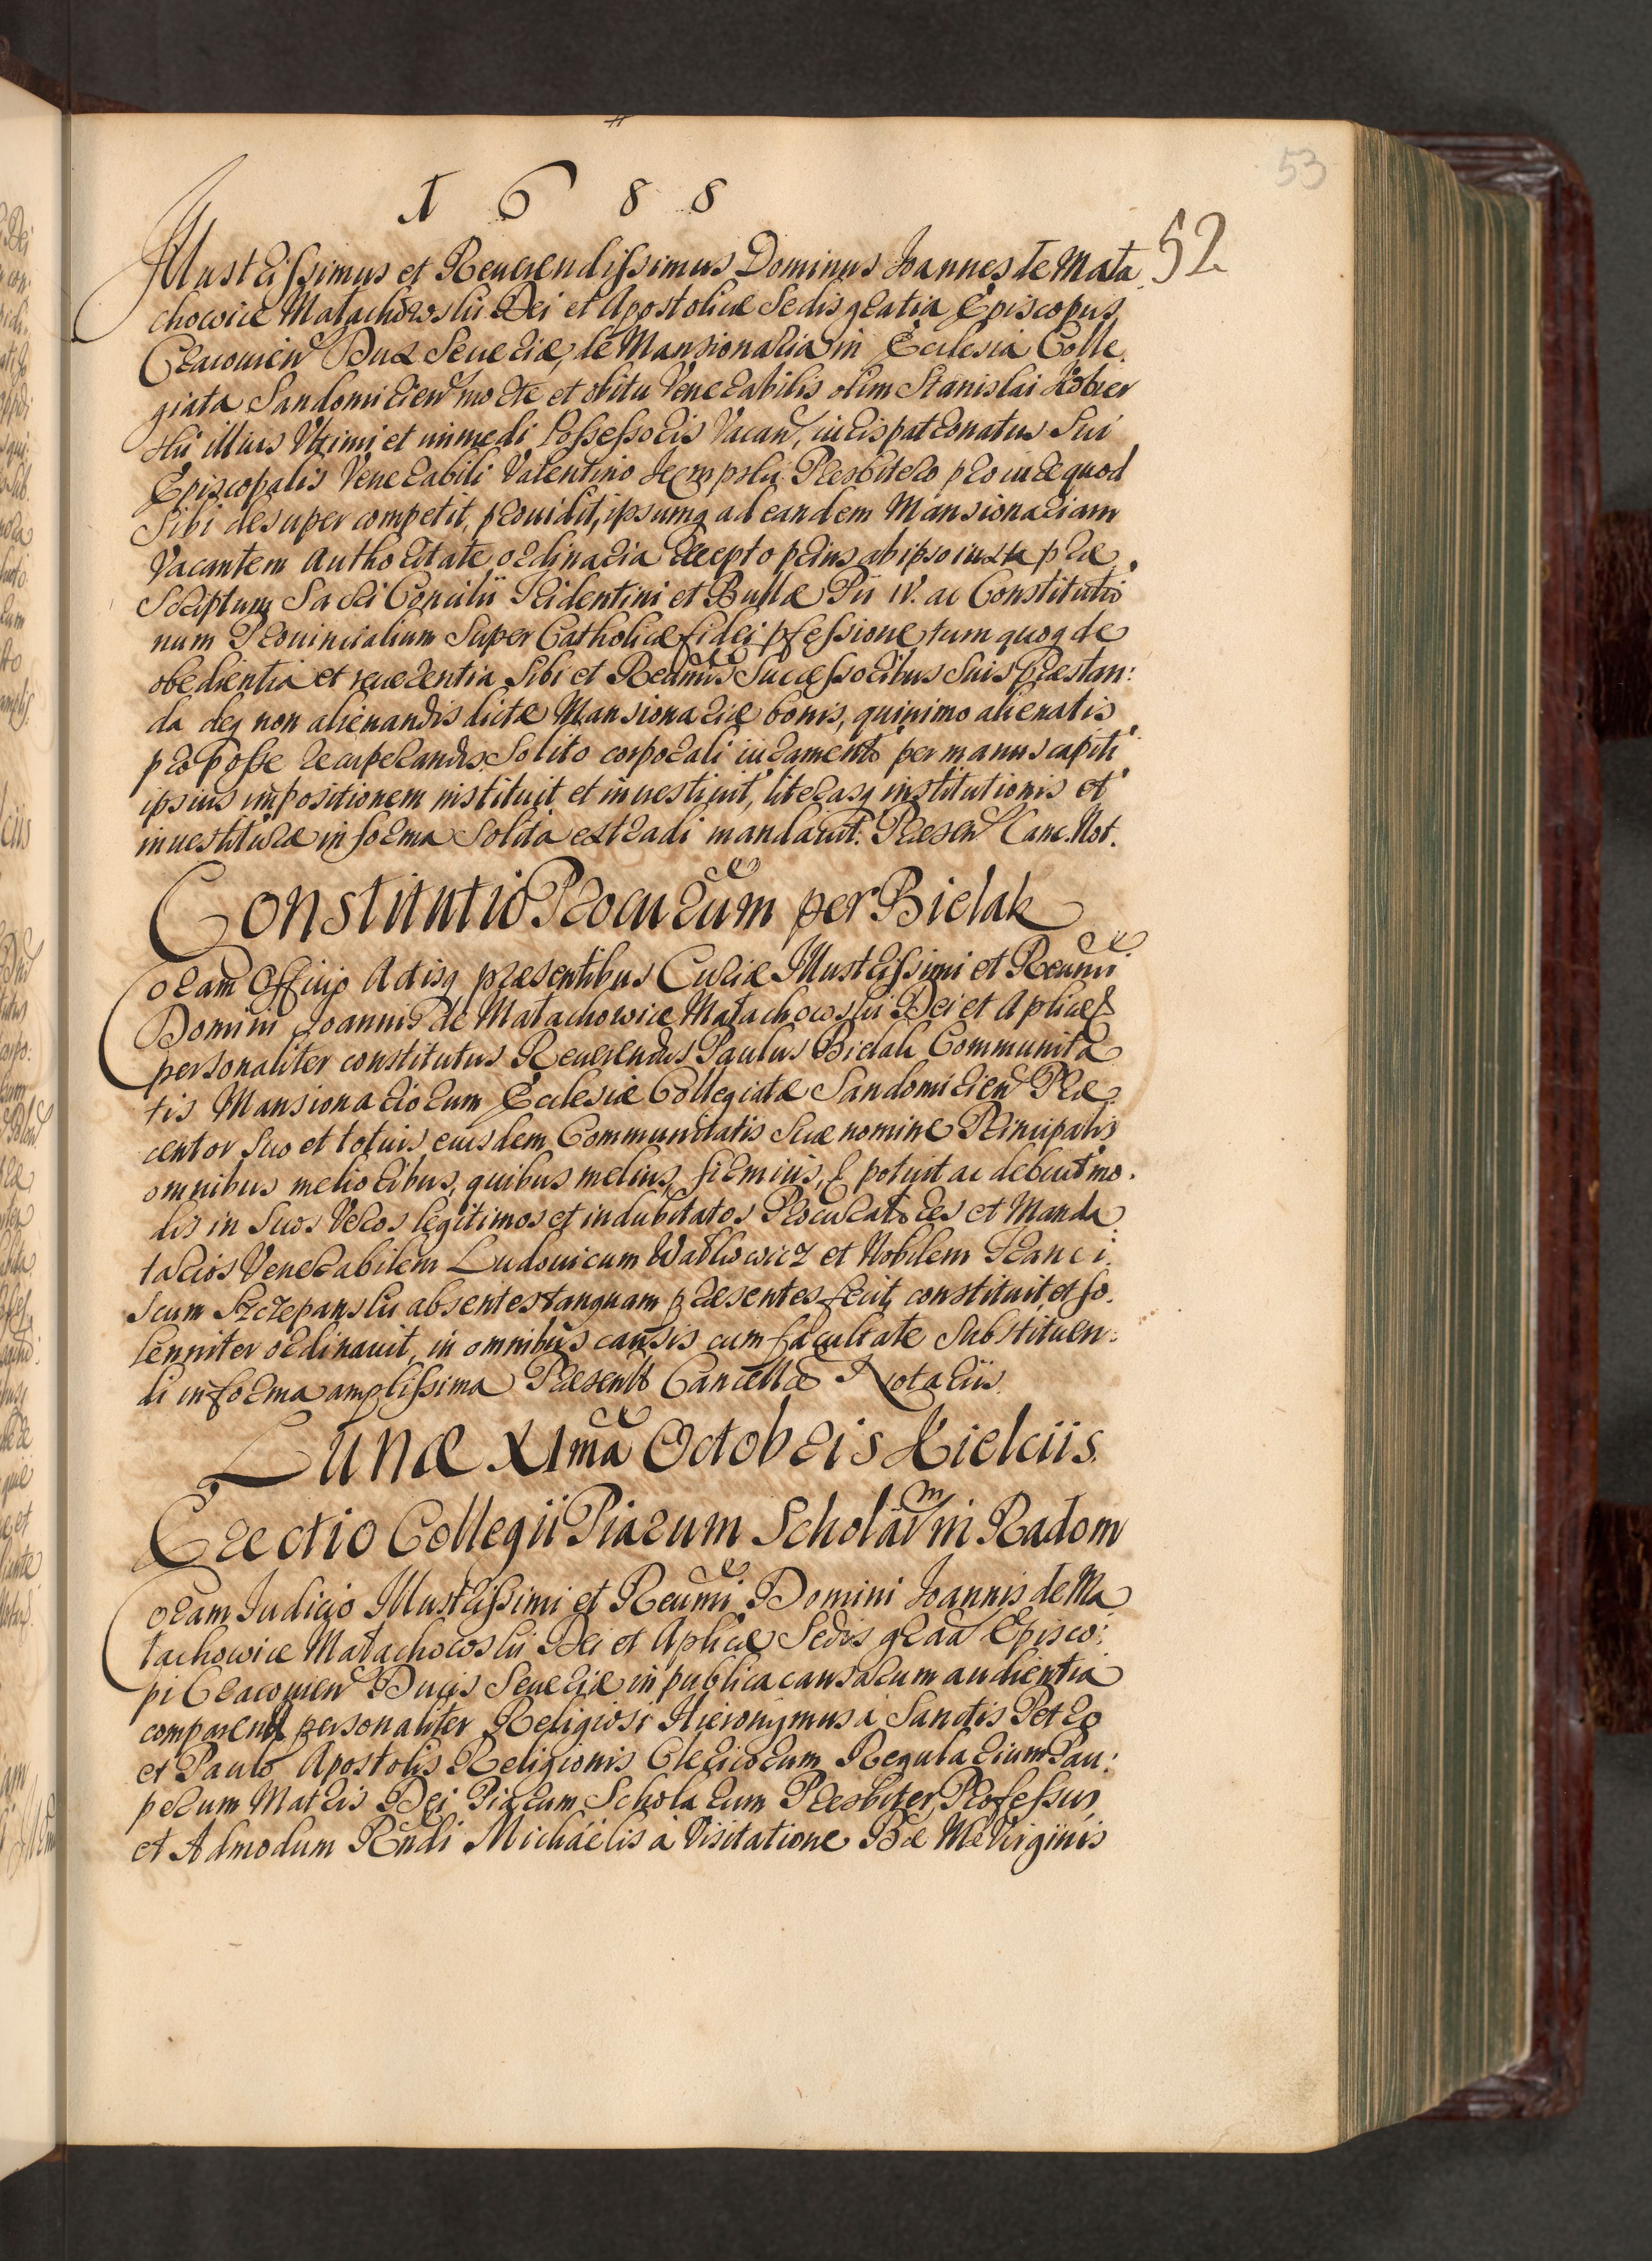 53
1688
52
Illustrissimus et Reuerendissimus Dominus Joannes de Mała
chowice Małachowski Dei et Apostolicæ Sedis gratia Episcopus
Cracouien Dux Seueriæ, de Mansionaria in Ecclesia Colle.
giata Sandomirien morte et obitu Venerabilis olim Stanislai
ski illius Vltimi et immedi Possessoris Vacan, iurispatronatus Sui
Episcopalis Venerabili Valentino Presbitero pro iure quod
Sibi desuper competit, prouidit, ipsumq ad eandem Mansionariam
Vacantem Authoritate ordinaria recepto prius ab ipso iuxta præ
Scriptum Sacri Concilii Tridentini et Bullæ Pii IV. ac Constitutio
num Prouincialium Super Catholicæ fidei pfessione tum quoq de
obedientia et reuerentia Sibi et Reundis Successoribus Suis præstan:
da deq non alienandis dictæ Mansionariæ bonis, quinimo alienatis
pro posse recuperandis Solito corporali iuramento per manus capiti
ipsius impositionem instituit et inuestiuit, literasq institutionis et
inuestituræ in forma Solita extradi mandauit. Præsen Canc. Not.
Constitutio Procurum per Bielak
Coram Officio Actisq præsentibus Curiæ Illustrissimi et Reundi
Domini Joannis de Małachowice Małachowski Dei et Aplicæ S
personaliter constitutus Reuerendus Paulus Bielak Communita
tis Mansionariorum Ecclesiæ Collegiatæ Sandomirien Præ
centor Suo et totius eiusdem Communitatis Suæ nomine Principalis
omnibus melioribus, quibus melius, firmius, potuit ac debuit mo.
dis in Suos Veros legitimos et indubitatos Procuratores et Manda
tarios Venerabilem Ludouicum et Nobilem Franci
scum Szczepanski absentes tanquam præsentes fecit, constituit, et so.
lenniter ordinauit, in omnibus causis cum facultate Substituen:
di in forma amplissima Præsentb Cancellæ Notariis.
Lunæ XIma Octobris Kielciis.
Erectio Collegii Piarum Scholarm in Radom
Coram Judicio Illustrissimi et Reundi Domini Joannis de Ma
łachowice Małachowski Dei et Aplicæ Sedis graa Episco:
pi Cracouien Ducis Seueriæ in publica causarum audientia
comparend personaliter Religiosi Hieronymus à Sanctis Petro
et Paulo Apostolis Religionis Clericorum Regularium Pau:
perum Matris Dei Piarum Scholarum Præsbiter Professus,
et Admodum Rndi Michaelis à Visitatione Bæ Mæ Virginis